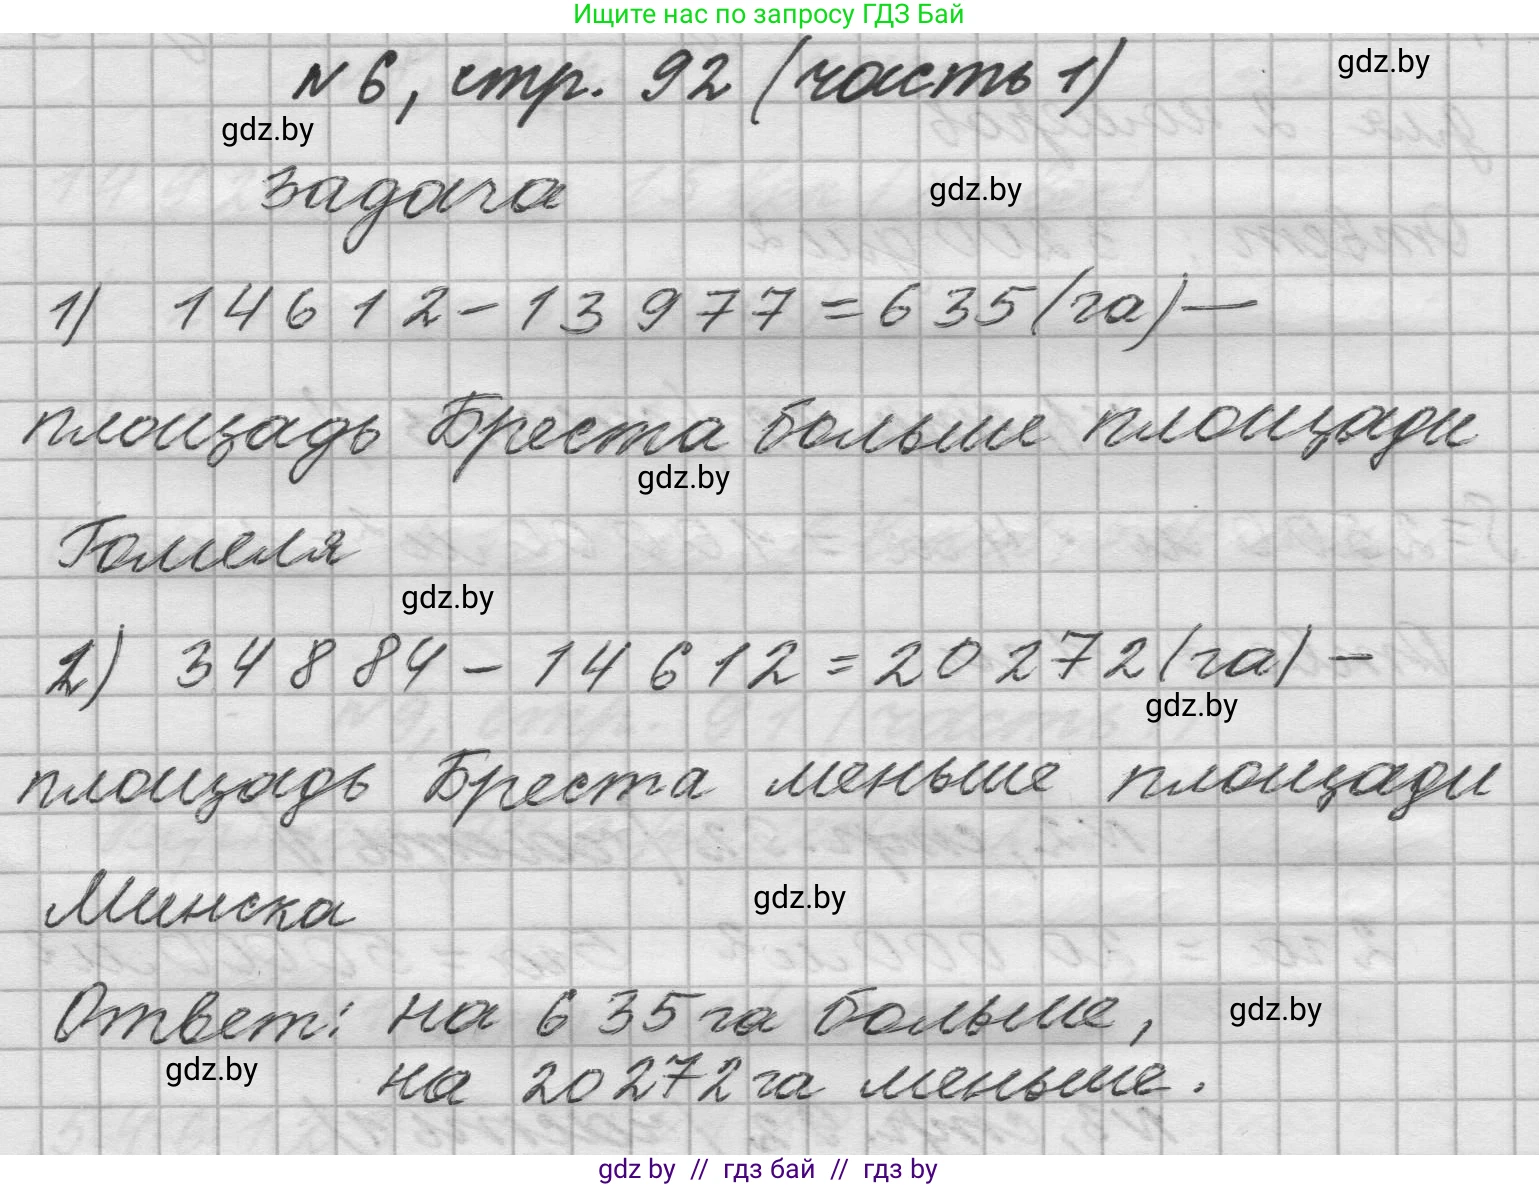 Ищите нас по запросу ГДЗ Бай
N 6, стр. 92 (часть 1)
gdz.by
gdz.by
задача
gdz.by
1) 14612-13977=635(га)-
площадь Бреста больше площади
gdz.by
Гомеля
gdz.by
2) 34884-14612=20272(га)-
gdz.by
площадь Бреста меньше площади
Минска
gdz.by
Ответ: на 635 га больше,
gdz.by
на 20272 га меньше.
gdz.by
gdz by // гдз бай // гдз by